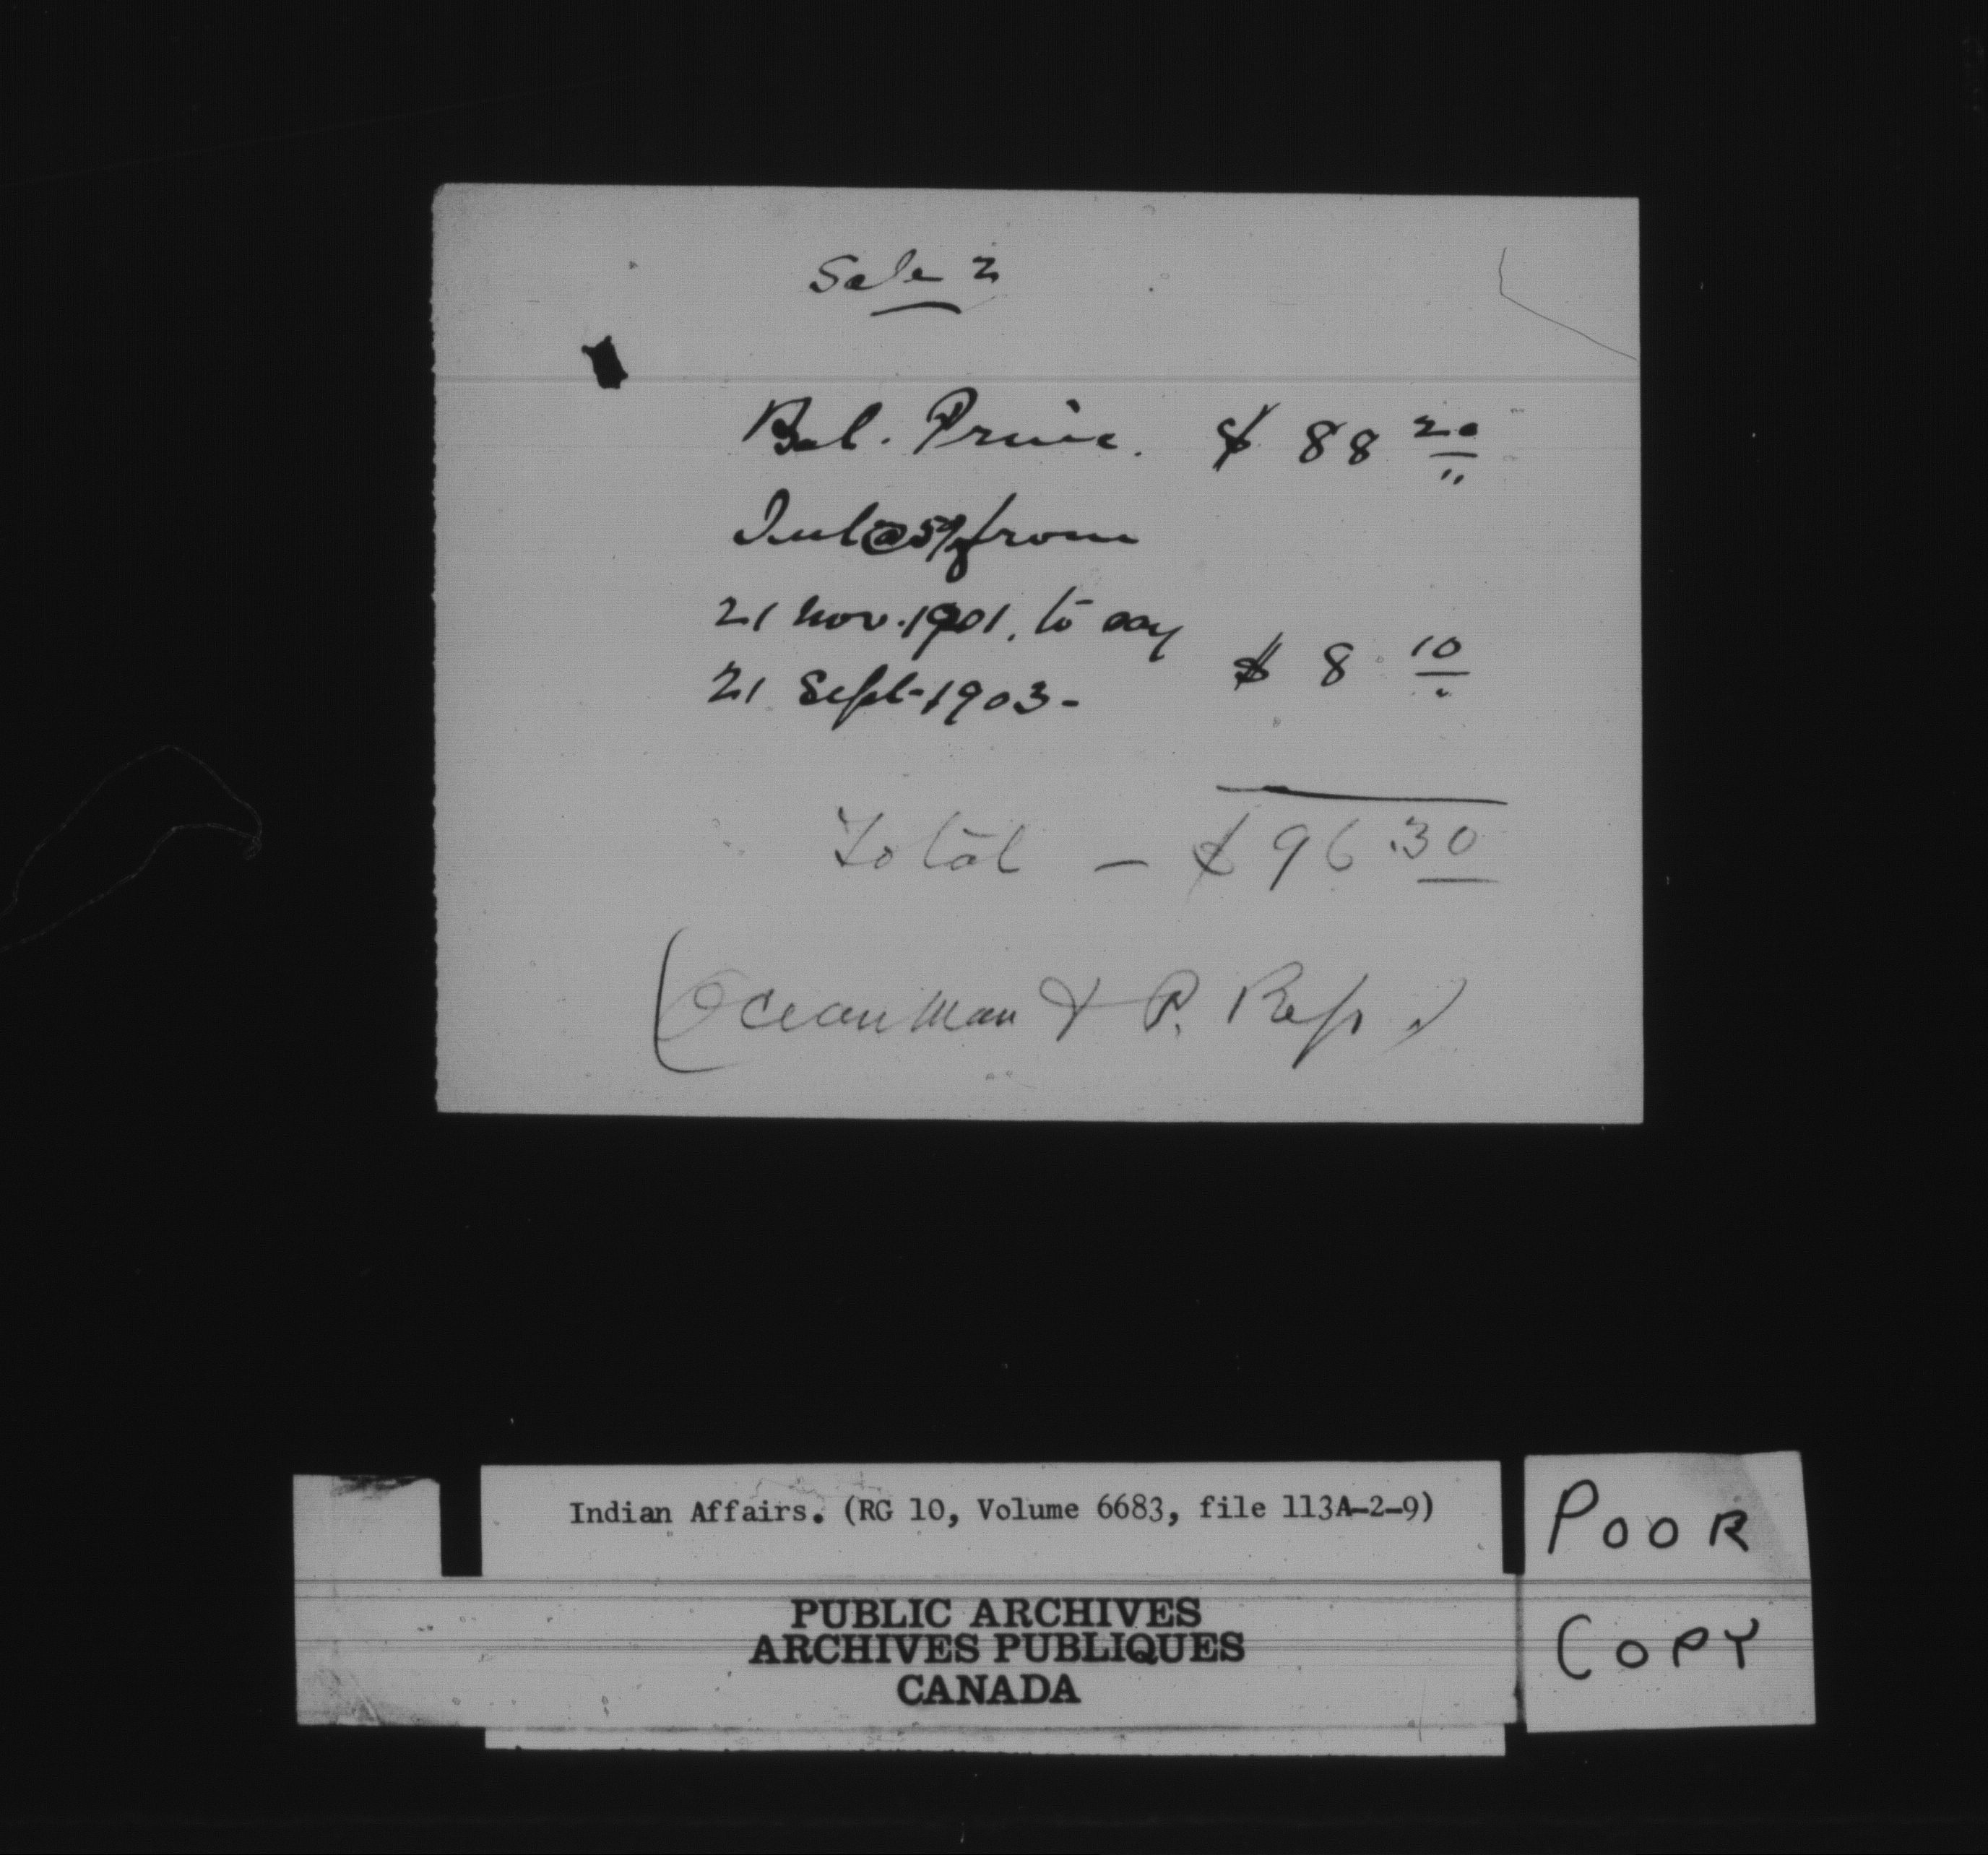 Sale 2
Bal. Princ. $ 88 20
"
Int @ 5% from
21 Nov. 1901. to say
21 Sept-1903- $ 8 10
"
Total - $ 96.30
(Ocean Man & P. Resp.)
Indian Affairs. (RG 10, Volume 6683, file 113A-2-9)
PUBLIC ARCHIVES
ARCHIVES PUBLIQUES
CANADA
POOR
COPY